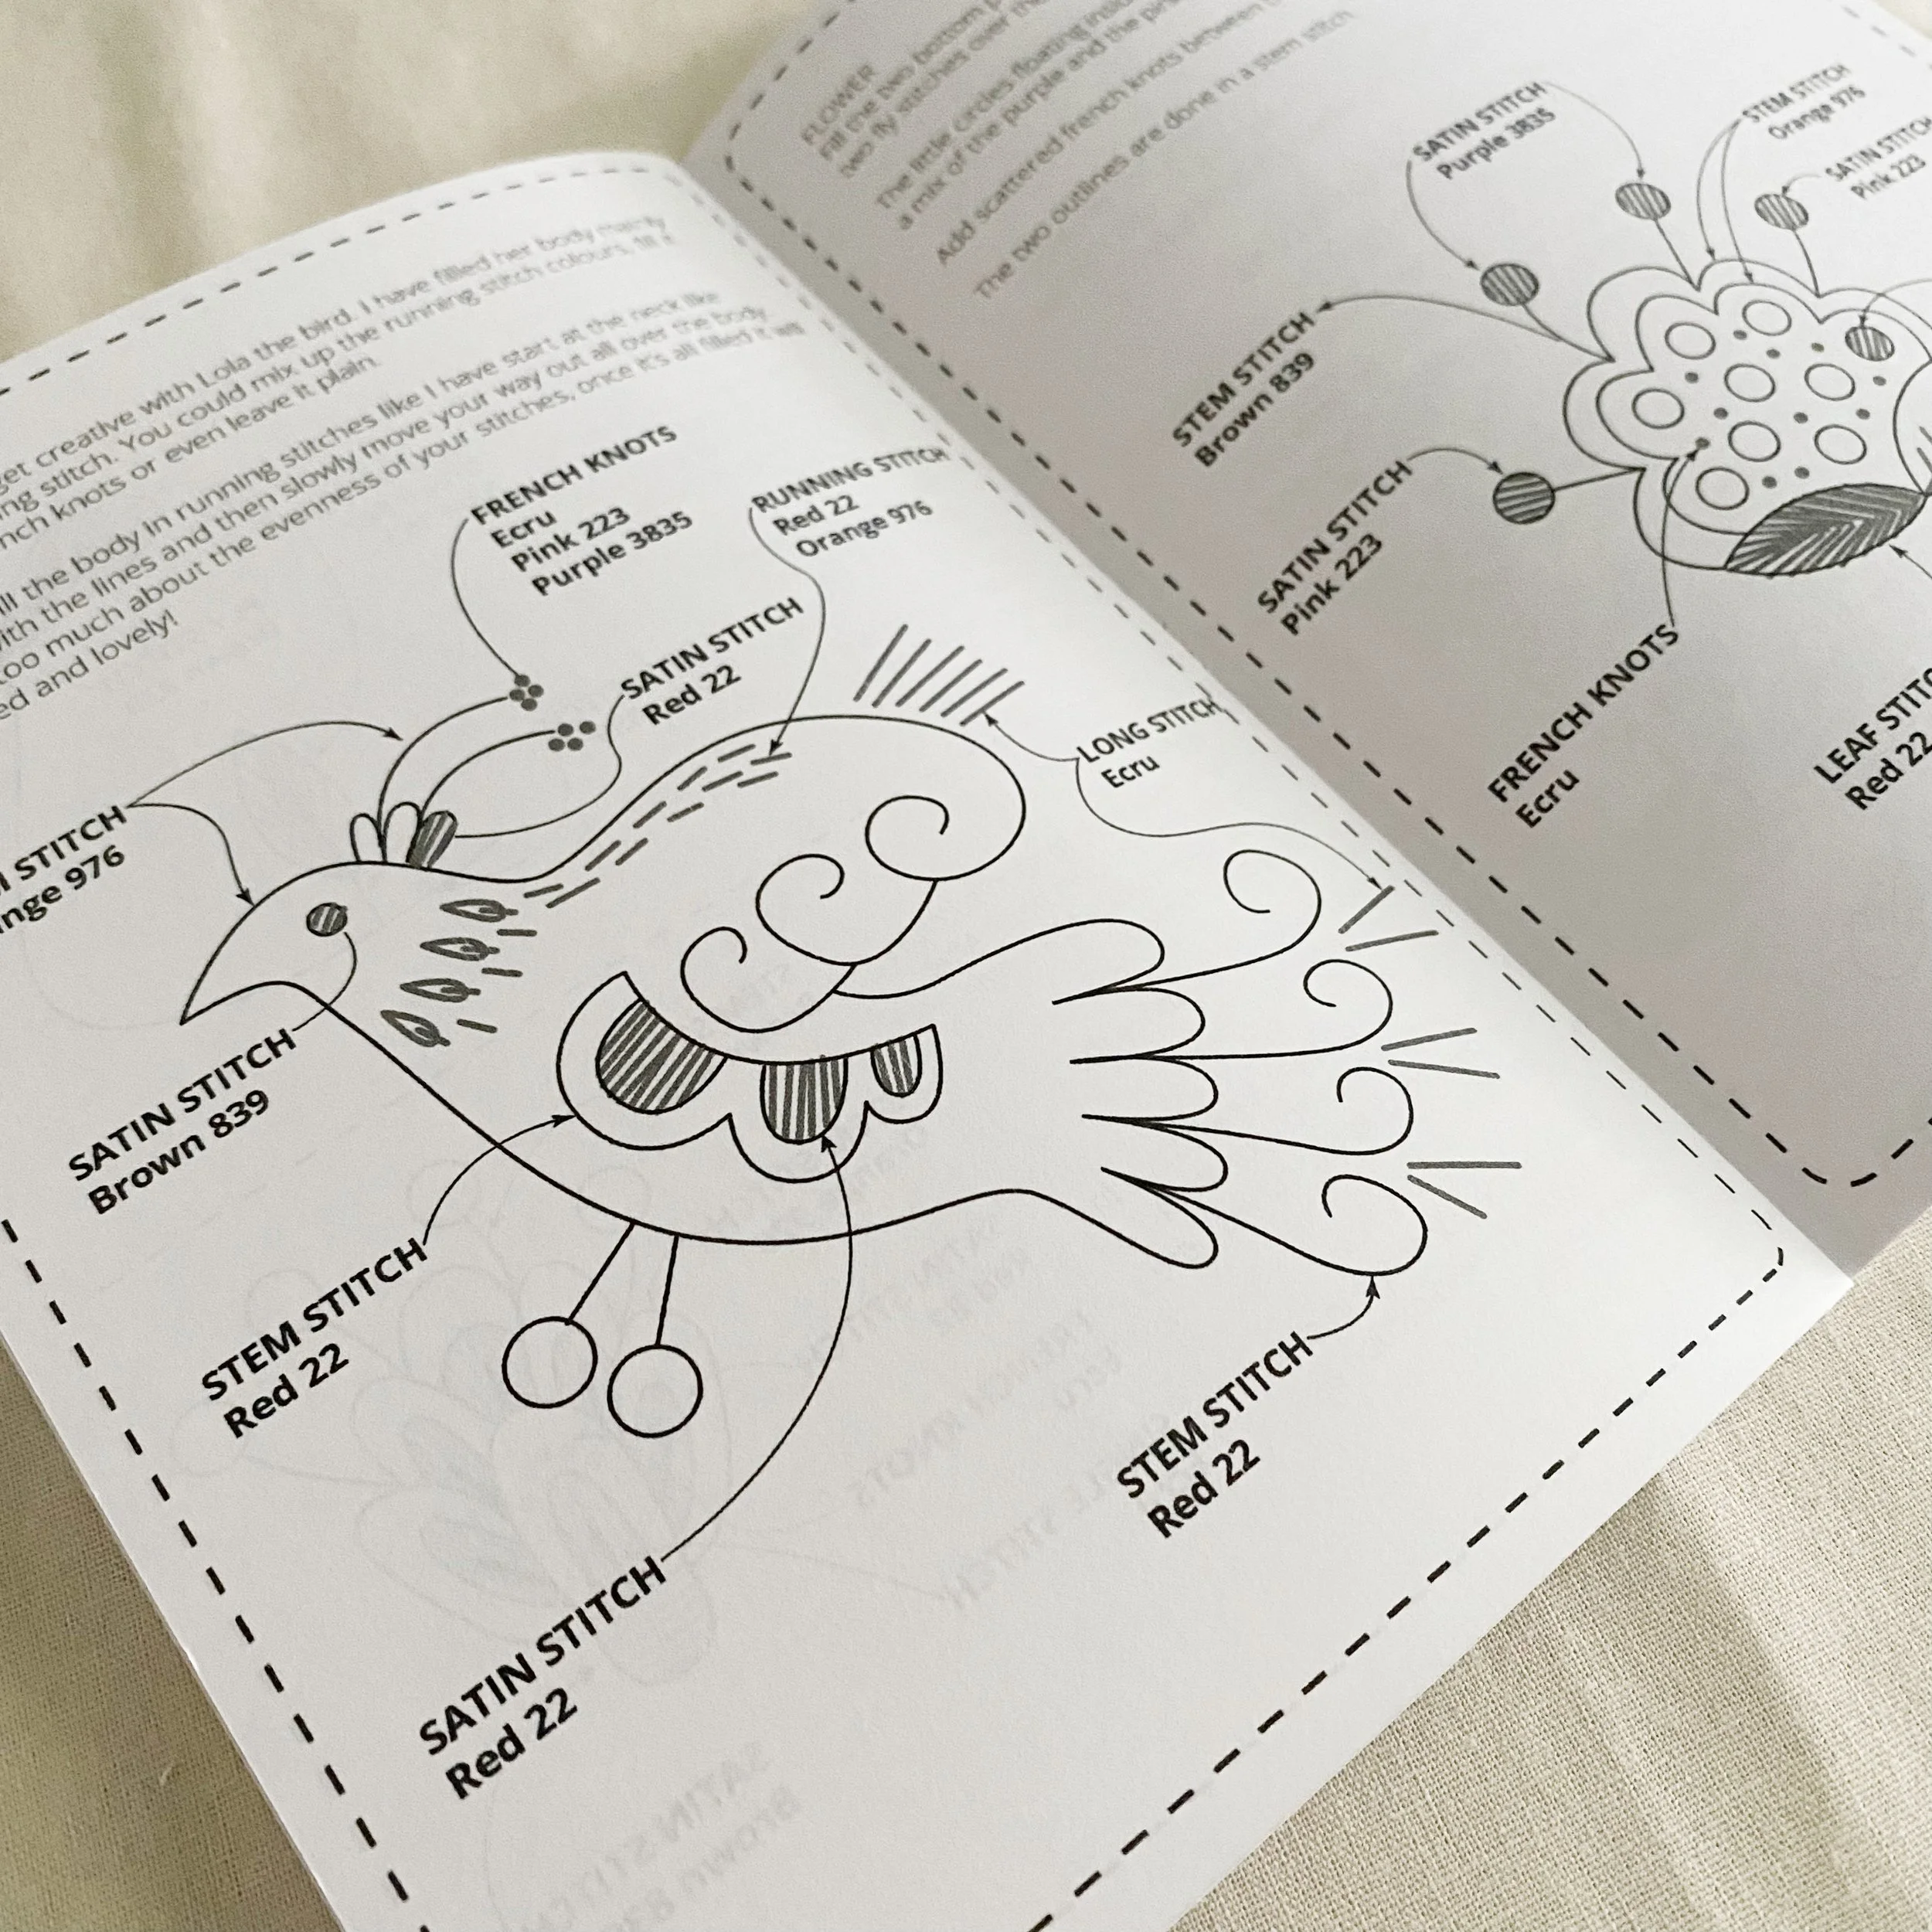 get creative with Lola the bird. I have filled her body mainly
stitch. You could mix up the running stitch colours, fill it
knots or even leave it plain.
the body in running stitches like I have start at the neck like
with the lines and then slowly move your way out all over the body.
too much about the evenness of your stitches, once it's all filled it will
and lovely!
FRENCH KNOTS
Ecru
Pink 223
Purple 3835
RUNNING STITCH
Red 22
Orange 976
SATIN STITCH
Red 22
LONG STITCH
Ecru
STITCH
976
SATIN STITCH
Brown 839
STEM STITCH
Red 22
SATIN STITCH
Red 22
STEM STITCH
Red 22
FLOWER
Fill the two bottom
two fly stitches over the
The little circles floating inside
a mix of the purple and the pink
Add scattered french knots between
The two outlines are done in a stem stitch
SATIN STITCH
Purple 3835
STEM STITCH
Orange 976
SATIN STITCH
Pink 223
STEM STITCH
Brown 839
SATIN STITCH
Pink 223
FRENCH KNOTS
Ecru
LEAF STITCH
Red 22